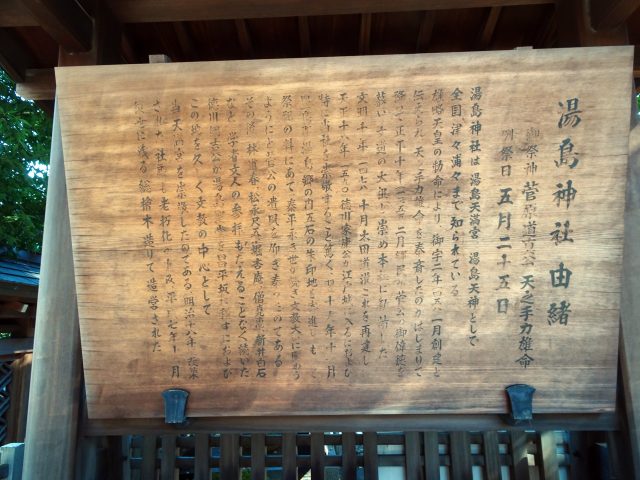 湯島神社由緒
御祭神 菅原道真公 天之手力雄命
例祭日 五月二十五日
湯島神社は 湯島天満宮 湯島天神として
全国津々浦々まで知られている
雄略天皇の勅命により 御宇二年 一月創建と
伝えられ 天之手力雄命を奉斎したのがはじまりで
降って正平十年 二月郷民が菅公の御偉徳を
慕い 文道の大祖と崇め本社に勧請した
文明十年 十月 太田道灌これを再建し
天正十八年 徳川家康公が江戸城に入るにおよび
特に当社を崇敬すること篤く 十一月
豊島郡湯島郷の内五石の朱印地を寄進し もって
祭祀の料にあて 泰平 世が続き 文教大いに賑わう
ように 菅公の遺風を仰ぎ奉ったのである
その後 林道春 松永尺五 堀杏庵 僧堯恵 新井白石
など 学者文人の参拝もたえることなく続いた
徳川綱吉公が湯島聖堂を昌平坂に移すにおよび
この地を久しく文教の中心として
当天満宮を崇敬したのである 明治十八年 改築
された 社殿も老朽化 平成七年十二月
後世に残る総檜木造りで造営された